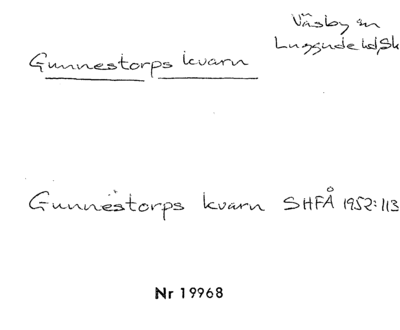 Väsby sn
Luggude hd, Sk
Gunnestorps kvarn
Gunnestorps kvarn SHFÅ 1952:113
Nr 19968